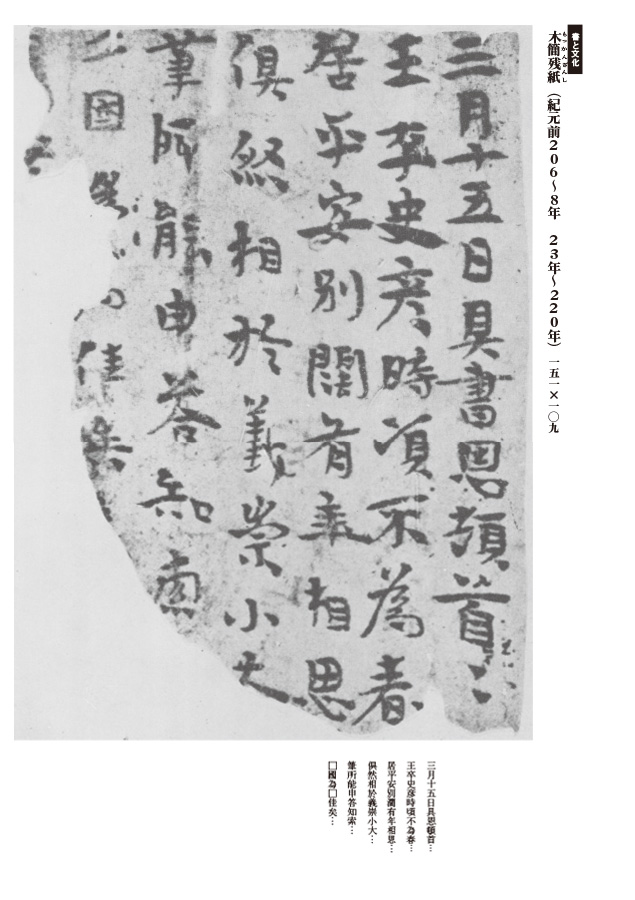 書と文化
木簡残紙（紀元前206～8年　23年～220年）一五一×一〇九
もっかんざんし
三月十五日具書恩頓首
王卒史彦時頃不為春
居平安別闊有年相思
俱然相於義崇小大
筆所能申答知索
國
佳矣
三月十五日具恩頓首…
王卒史彦時頃不為春…
居平安別濶有年相思…
俱然相於義崇小大…
筆所能申答知索…
□國為□佳矣…